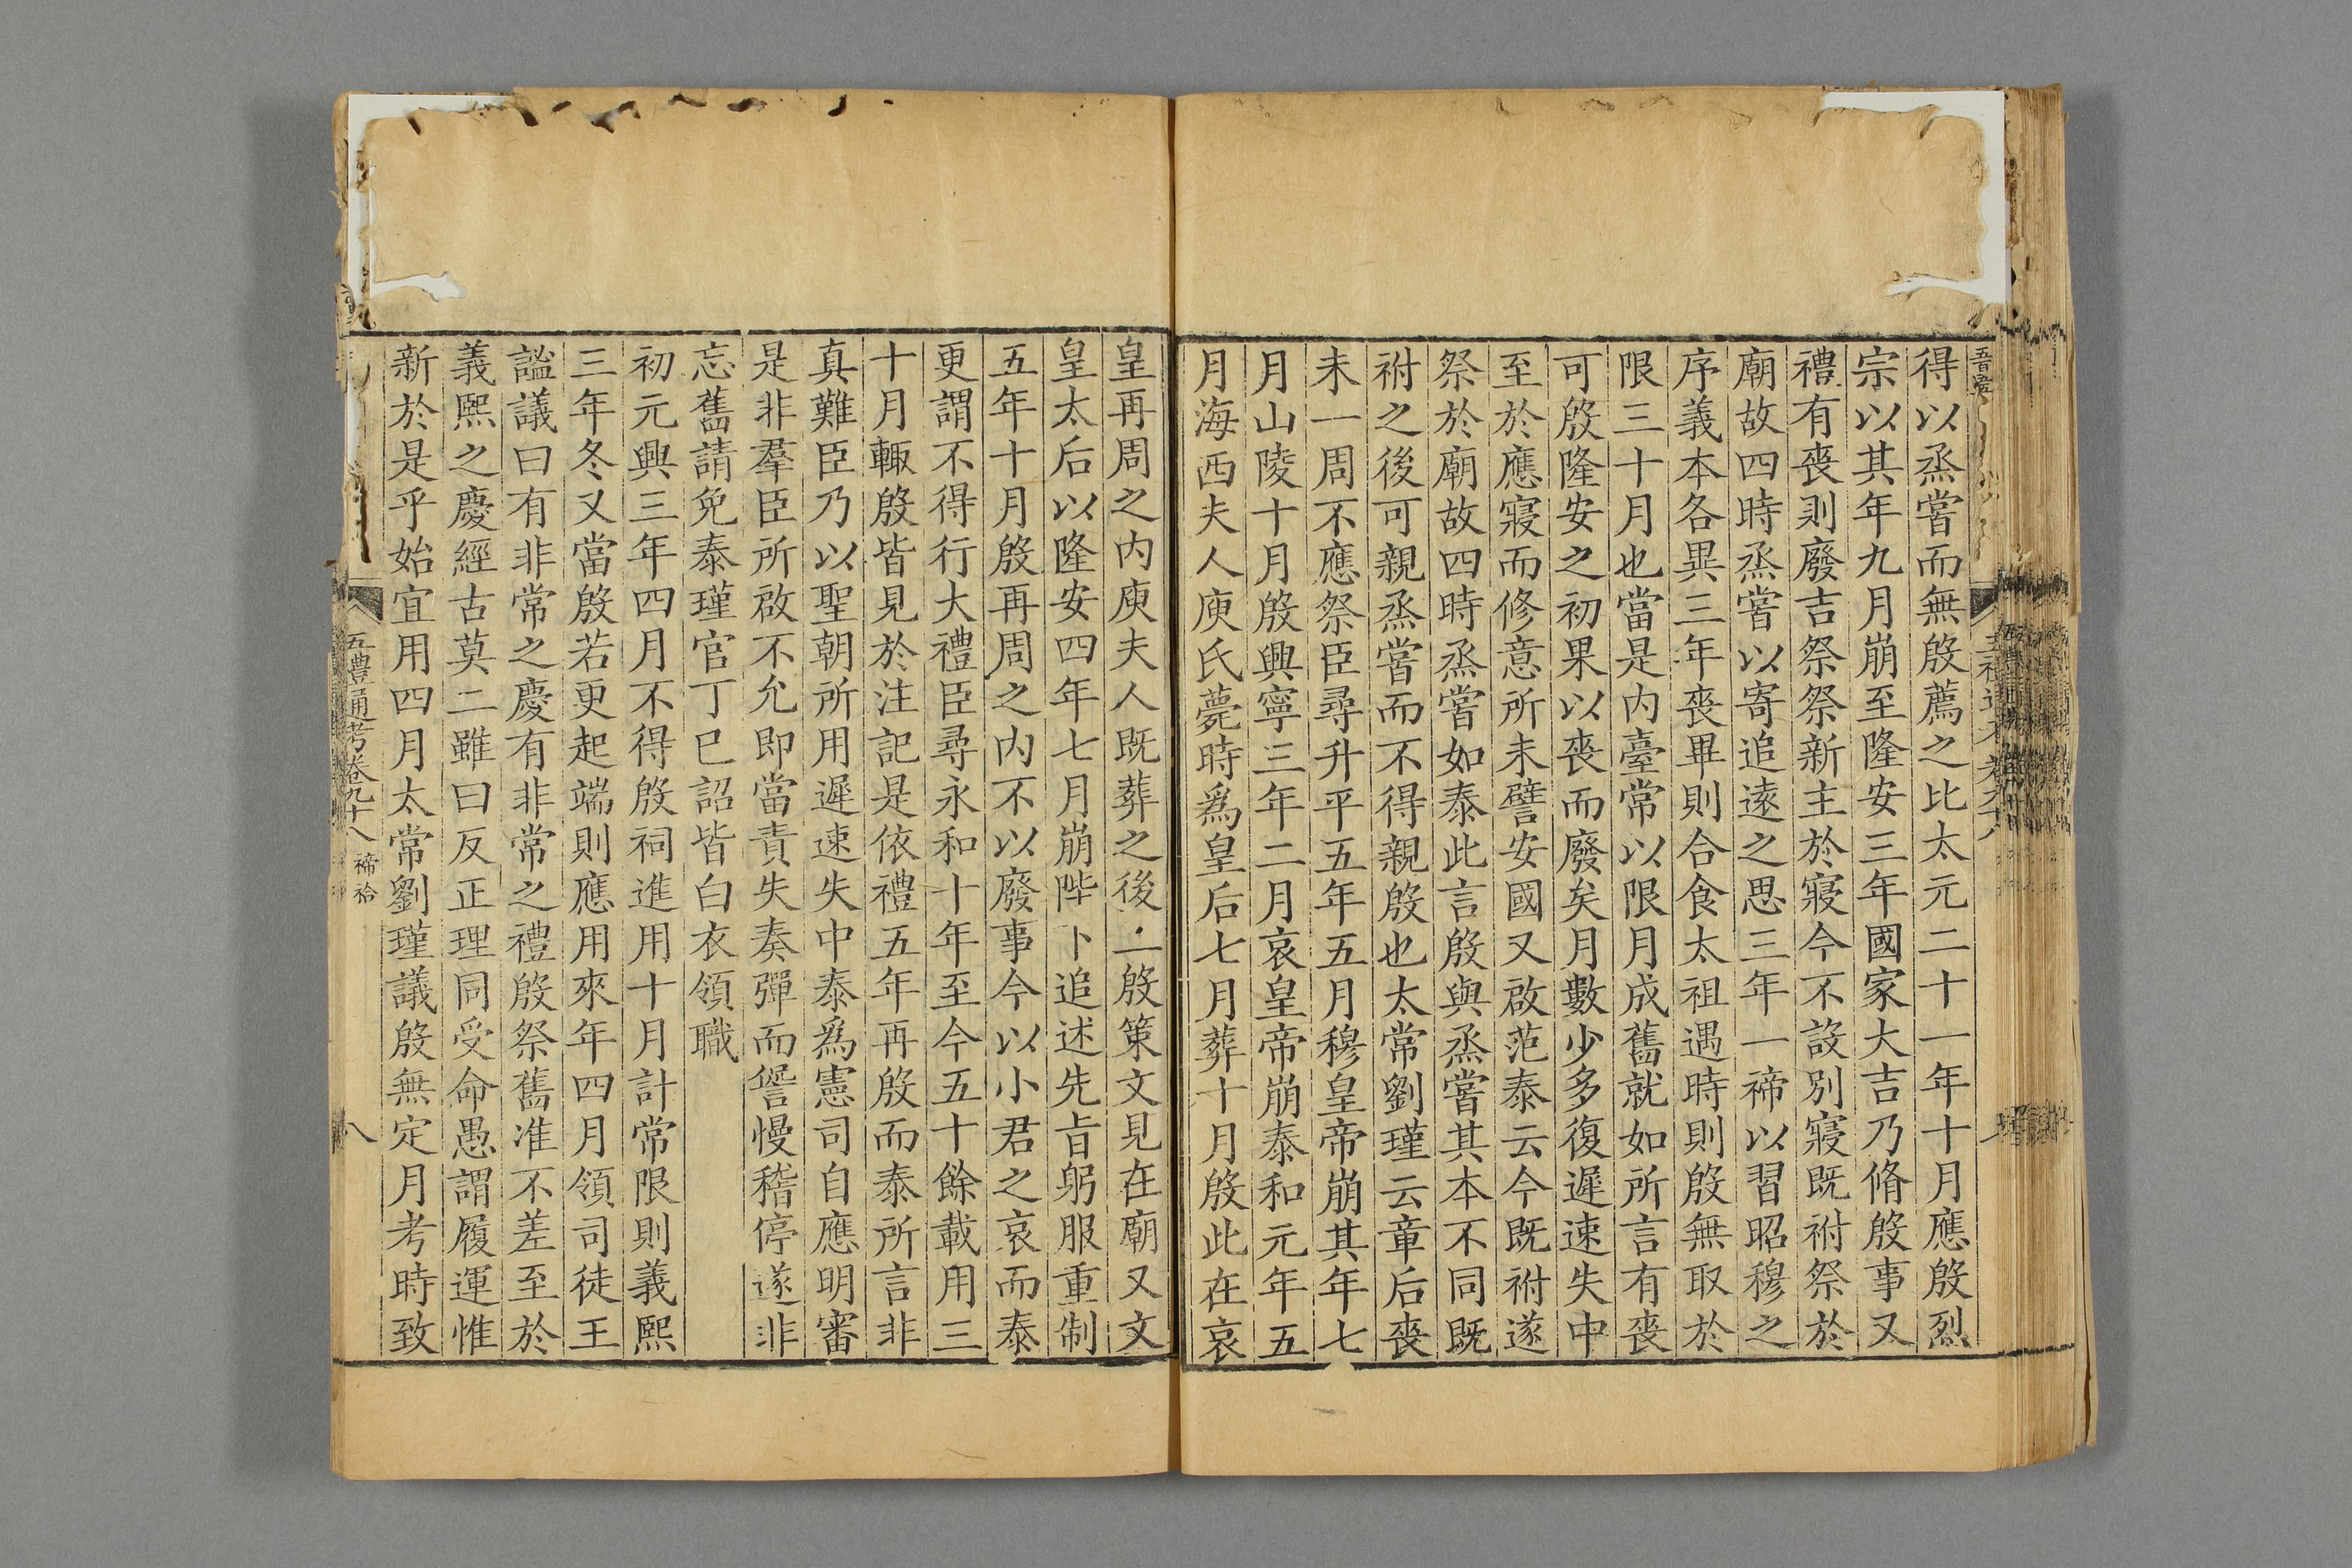 得以烝嘗而無殷薦之比太元二十一年十月應殷烈
宗以其年九月崩至隆安三年國家大吉乃脩殷事又
禮有喪則廢吉祭祭新主於寢今不設別寢既祔祭於
廟故四時烝嘗以寄追逺之思三年一禘以習昭穆之
序義本各異三年喪畢則合食太祖遇時則殷無取於
限三十月也當是内臺常以限月成舊就如所言有喪
可殷隆安之初果以喪而廢矣月數少多復遲速失中
至於應寢而修意所未譬安國又啟范泰云今既祔遂
祭於廟故四時烝嘗如泰此言殷與烝嘗其本不同既
祔之後可親烝嘗而不得親殷也太常劉瑾云章后喪
未一周不應祭臣尋升平五年五月穆皇帝崩其年七
月山陵十月殷興寧三年二月哀皇帝崩泰和元年五
月海西夫人庾氏薨時爲皇后七月葬十月殷此在哀
皇再周之内庾夫人既葬之後二殷策文見在廟又文
皇太后以隆安四年七月崩陛下追述先旨躬服重制
五年十月殷再周之内不以廢事今以小君之哀而泰
更謂不得行大禮臣尋永和十年至今五十餘載用三
十月輙殷皆見於注記是依禮五年再殷而泰所言非
真難臣乃以聖朝所用遲速失中泰爲憲司自應明審
是非羣臣所啟不允即當責失奏彈而諐慢稽停遂非
忘舊請免泰瑾官丁巳詔皆白衣領職
初元興三年四月不得殷祠進用十月計常限則義熙
三年冬又當殷若更起端則應用來年四月領司徒王
謐議曰有非常之慶有非常之禮殷祭舊准不差至於
義熙之慶經古莫二雖曰反正理同受命愚謂履運惟
新於是乎始宜用四月太常劉瑾議殷無定月考時致
五豊通考卷九十八 禘祫 八